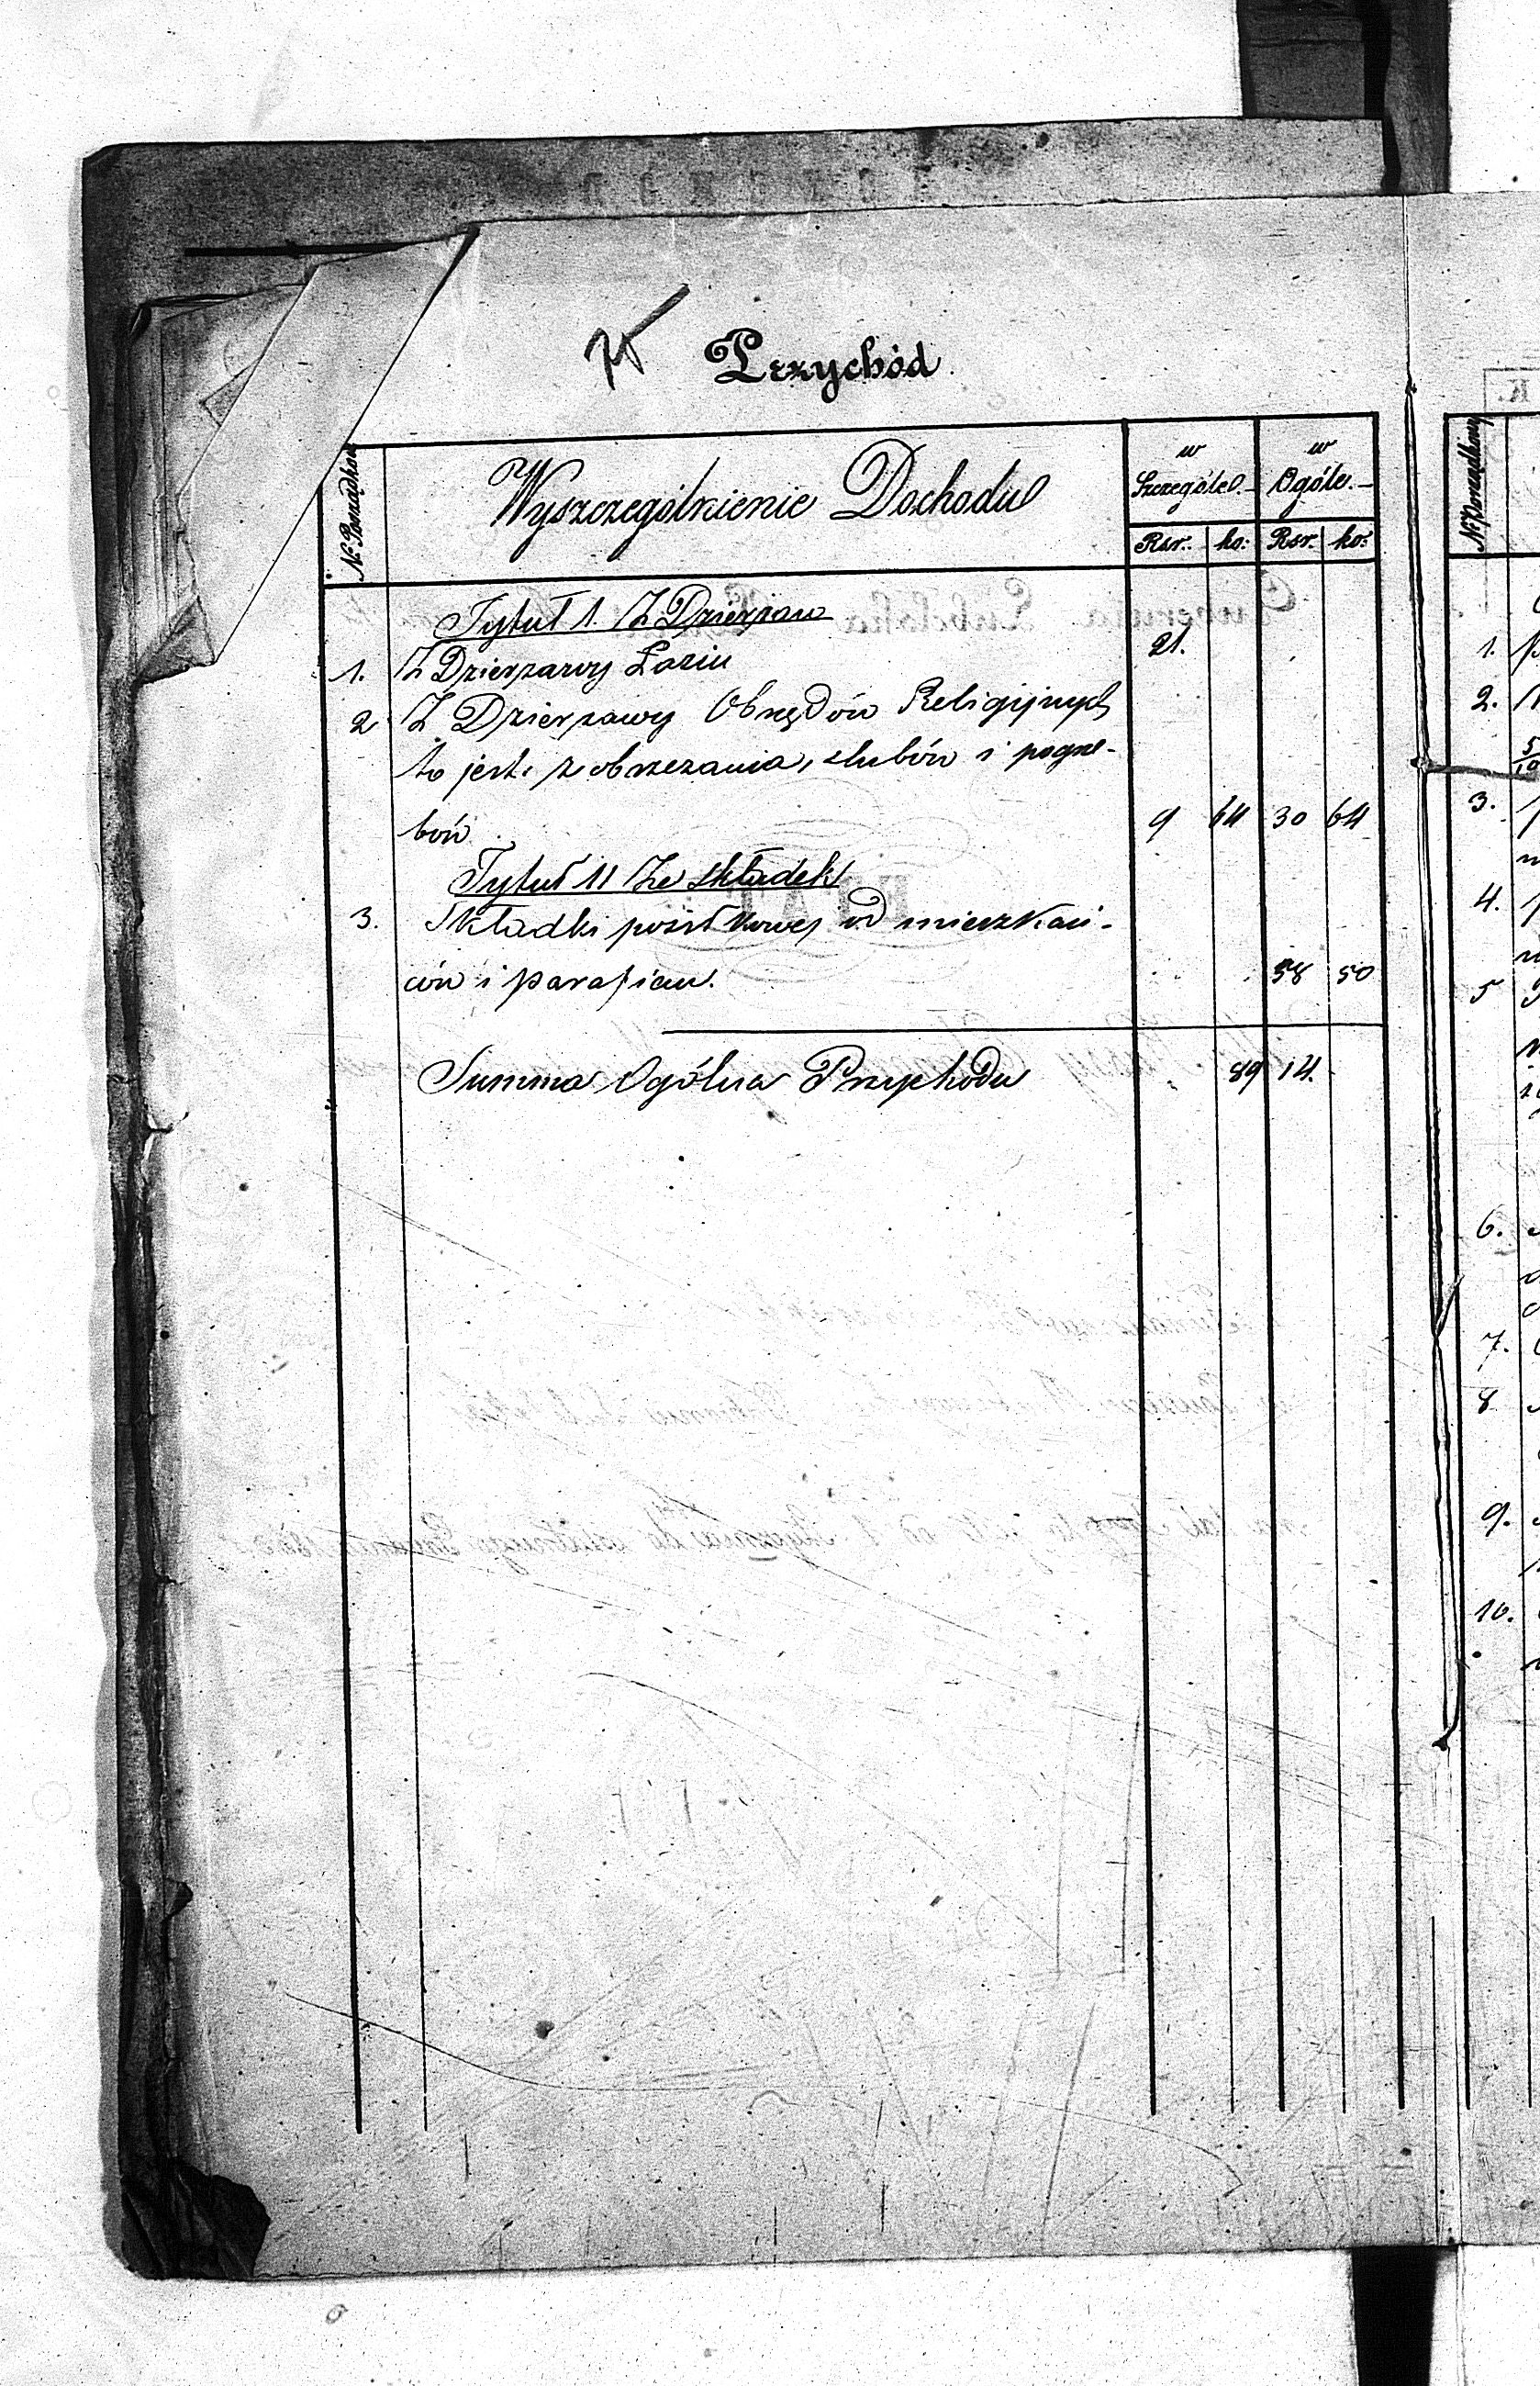 Przychód
Nr Porządkow
Wyszczególnienie Dochodu
w Szczególe.
w Ogóle.
Rsr. ko: Rsr. ko:
Tytuł 1. Z Dzierzaw
1. Z Dzierzawy Łazin 21.
2 Z Dzierzawy Obrzędów Religijnych
to jest: z obrzezania, slubów i pogrze-
bów 9 64 30 64
Tytuł 11 Ze składek
3. Składki od mieszkań-
ców i parafian. 58 50
Summa Ogólna Przychodu 89 14.
Nr Porządkowy
1.
2.
3.
4.
5
6.
7.
8
9.
10.